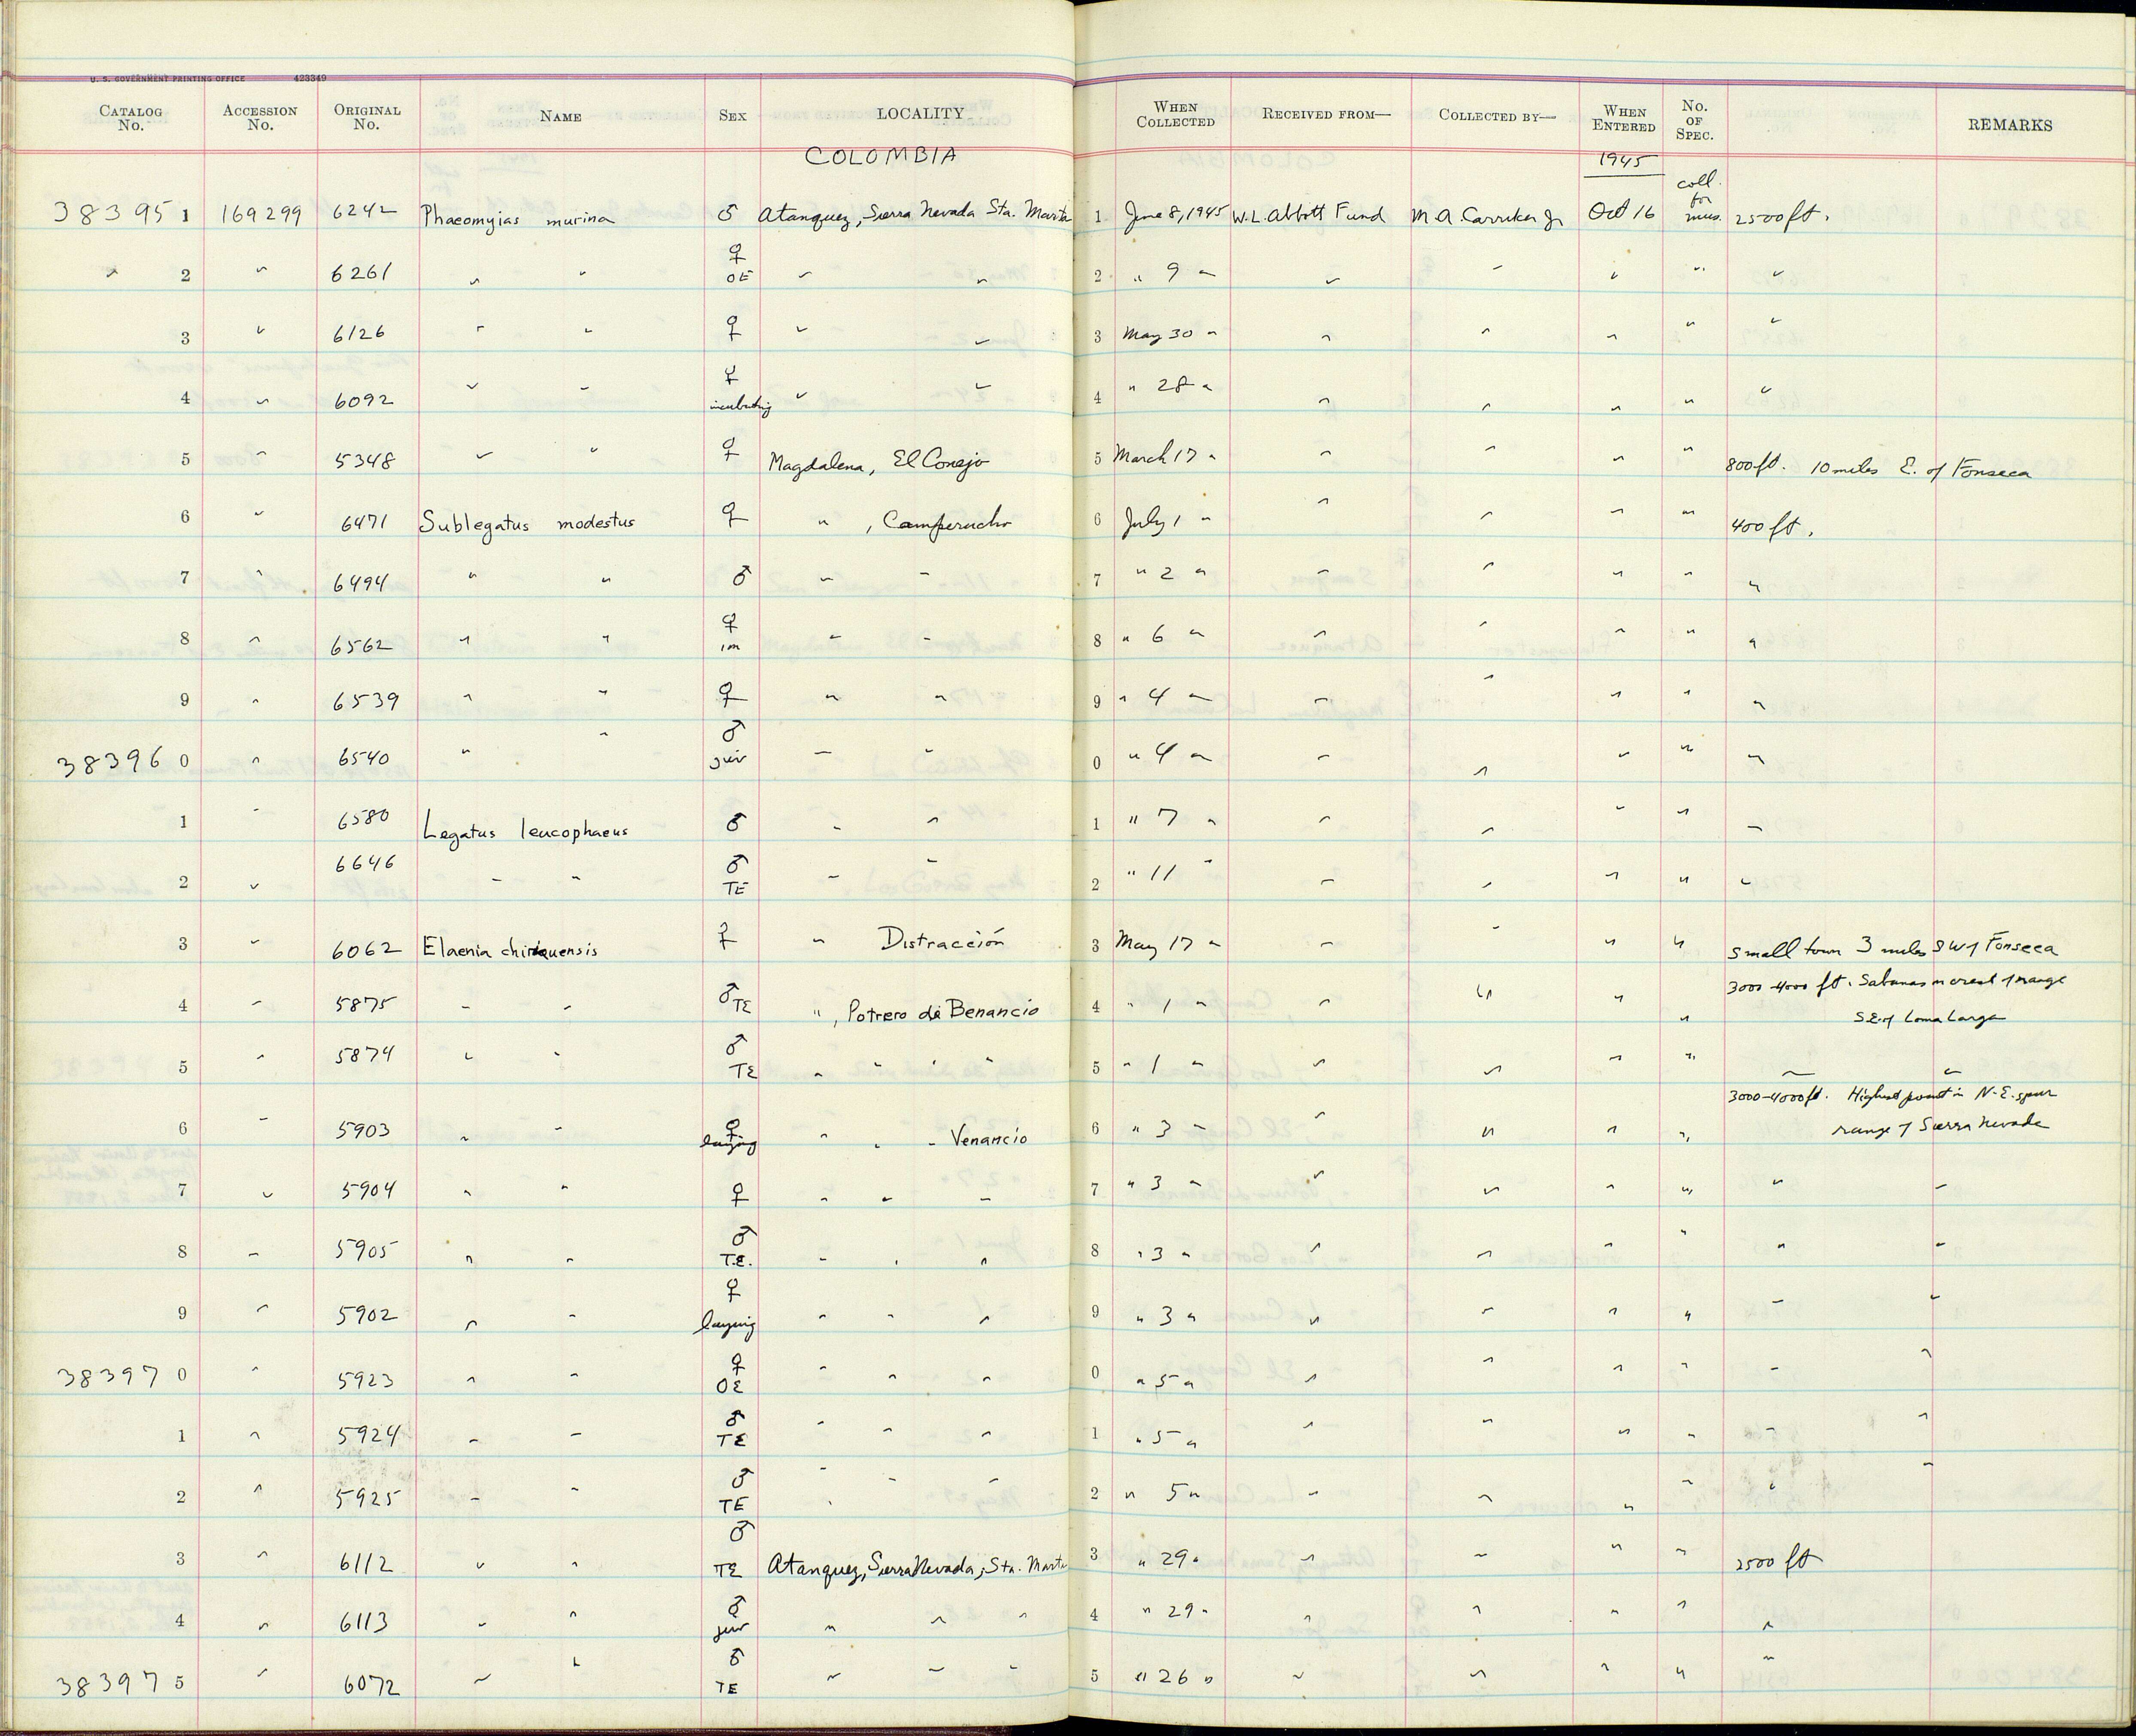 U. S. GOVERNMENT PRINTING OFFICE 423349
CATALOG No. ACCESSION No. ORIGINAL No. NAME SEX LOCALITY WHEN COLLECTED RECEIVED FROM— COLLECTED BY— WHEN ENTERED No. OF SPEC. REMARKS
COLOMBIA 1945
38395 1 169299 6242 Phaeomyias murina ♂ Atanquez, Sierra Nevada Sta. Marta 1 June 8, 1945 W.L. Abbott Fund M.A. Carriker Jr Oct 16 coll. for mus. 2500 ft.
" 2 " 6261 " " ♀ OE " " 2 " 9 " " " " " "
3 " 6126 " " ♀ " " 3 May 30 " " " " " "
4 " 6092 " " ♀ incubating " " 4 " 28 " " " " " "
5 " 5348 " " ♀ Magdalena, El Conejo 5 March 17 " " " " " 800 ft. 10 miles E. of Fonseca
6 " 6471 Sublegatus modestus ♀ " , Camperucho 6 July 1 " " " " " 400 ft.
7 " 6494 " " ♂ " " 7 " 2 " " " " " "
8 " 6562 " " ♀ im " " 8 " 6 " " " " " "
9 " 6539 " " ♀ " " 9 " 4 " " " " " "
38396 0 " 6540 " " ♂ juv " " 0 " 4 " " " " " "
1 " 6580 Legatus leucophaeus ♂ " " 1 " 7 " " " " " "
2 " 6646 " " ♂ TE " " 2 " 11 " " " " " "
3 " 6062 Elaenia chiriquensis ♀ " Distracción 3 May 17 " " " " " Small town 3 miles SW of Fonseca
4 " 5875 " " ♂ TE " , Potrero de Benancio 4 " 1 " " " " " 3000-4000 ft. Sabanas on crest of range S.E. of Loma Larga
5 " 5874 " " ♂ TE " " " " 5 " 1 " " " " " " "
6 " 5903 " " ♀ laying " " " Venancio 6 " 3 " " " " " 3000-4000 ft. Highest point in N.E. spur range of Sierra Nevada
7 " 5904 " " ♀ " " " 7 " 3 " " " " " " "
8 " 5905 " " ♂ T.E. " " " 8 " 3 " " " " " " "
9 " 5902 " " ♀ laying " " " 9 " 3 " " " " " " "
38397 0 " 5923 " " ♀ OE " " " 0 " 5 " " " " " " "
1 " 5924 " " ♂ TE " " " 1 " 5 " " " " " " "
2 " 5925 " " ♂ TE " " " 2 " 5 " " " " " " "
3 " 6112 " " ♂ TE Atanquez, Sierra Nevada, Sta. Marta 3 " 29 " " " " " 2500 ft
4 " 6113 " " juv " " " 4 " 29 " " " " " "
38397 5 " 6072 " " ♂ TE " " " 5 " 26 " " " " " "